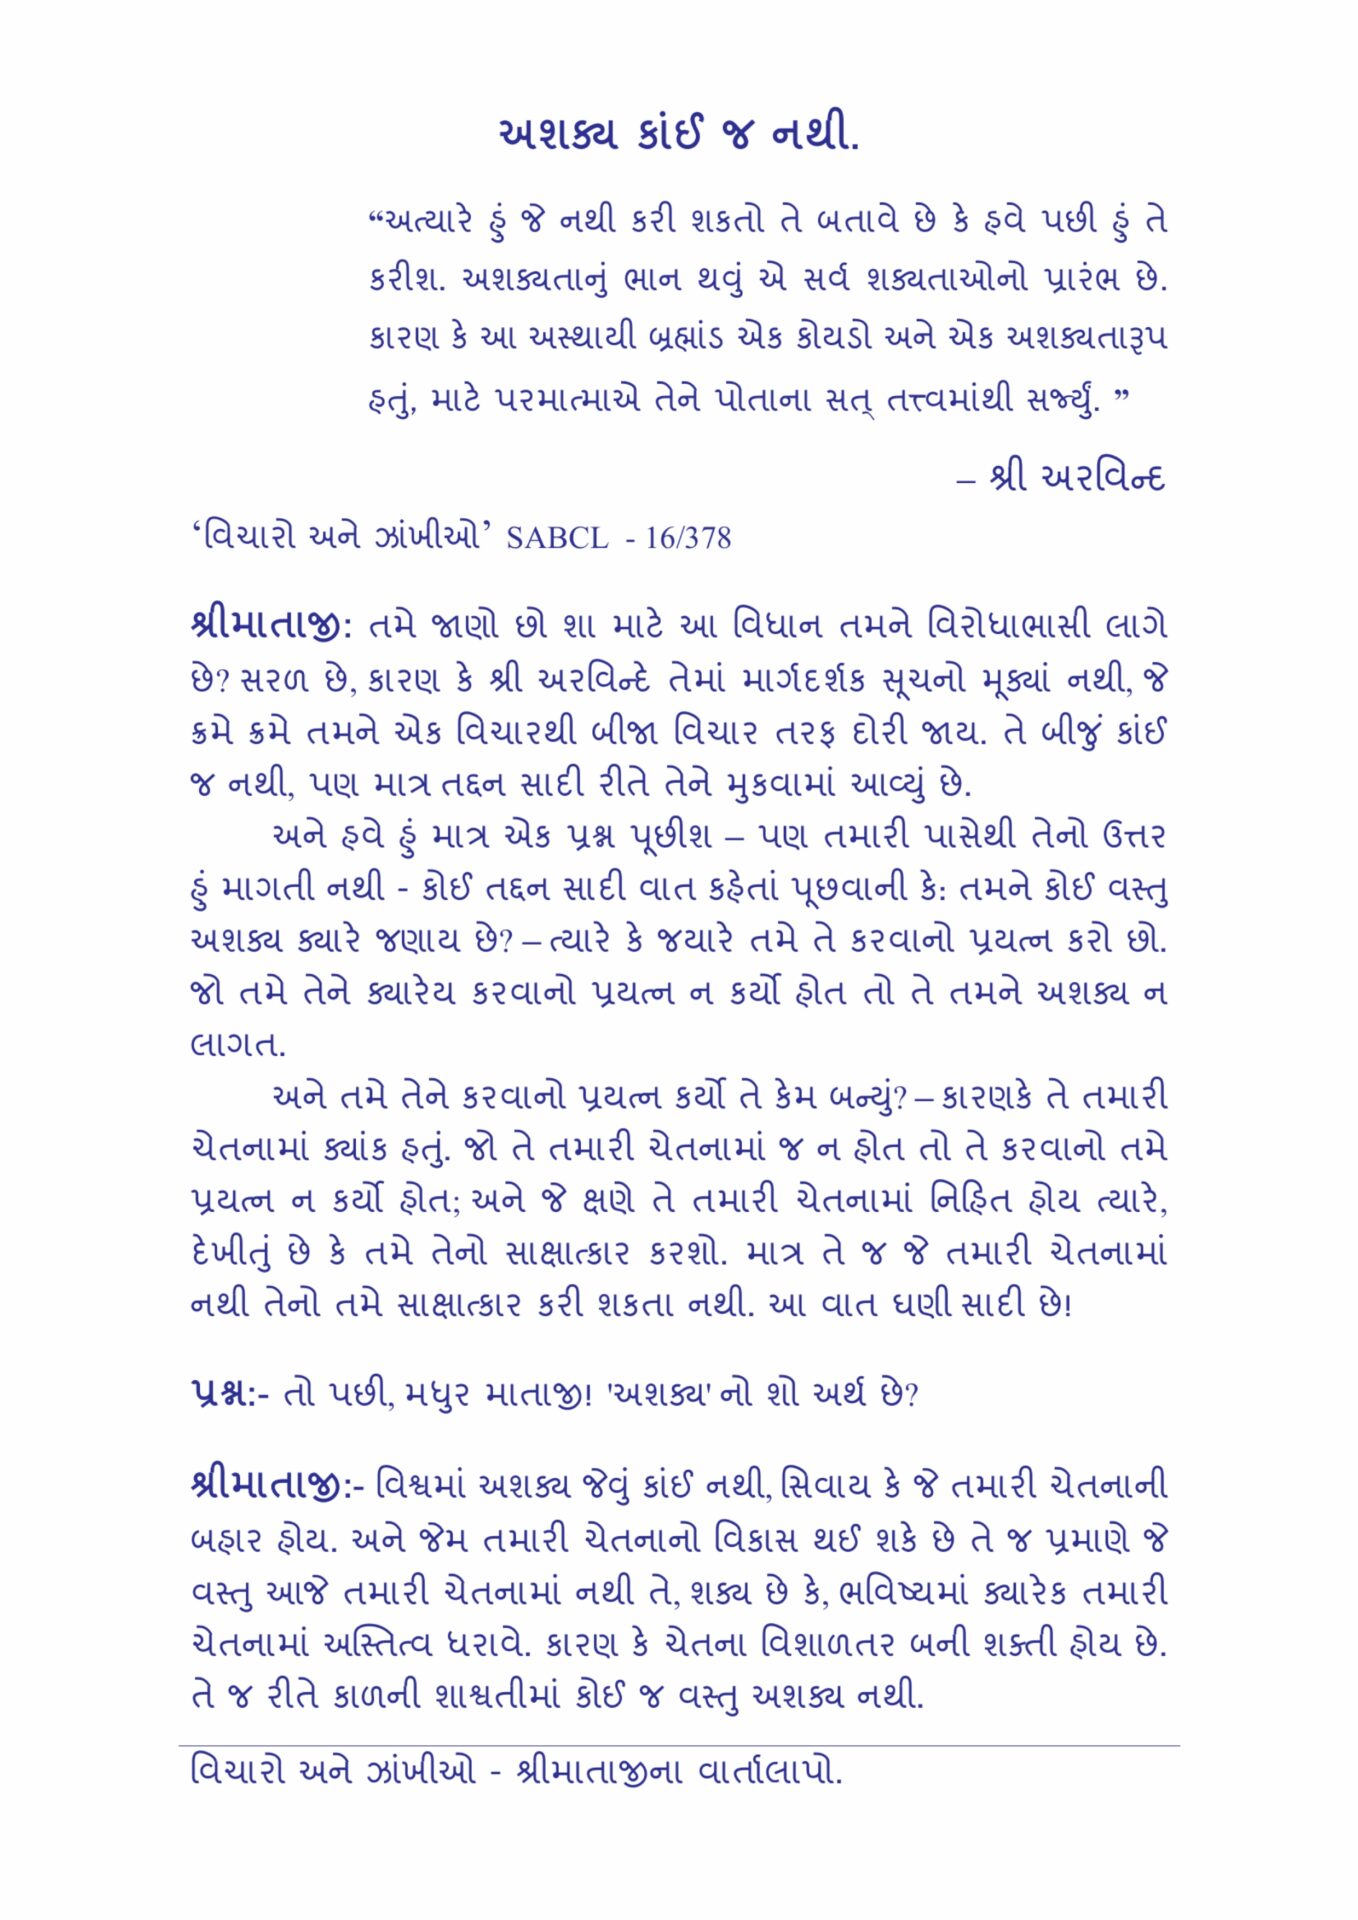 અશક્ય કાંઈ જ નથી.
“અત્યારે હું જે નથી કરી શકતો તે બતાવે છે કે હવે પછી હું તે
કરીશ. અશક્યતાનું ભાન થવું એ સર્વ શક્યતાઓનો પ્રારંભ છે.
કારણ કે આ અસ્થાયી બ્રહ્માંડ એક કોયડો અને એક અશક્યતારૂપ
હતું, માટે પરમાત્માએ તેને પોતાના સત્ તત્ત્વમાંથી સર્જ્યું. ”
– શ્રી અરવિન્દ
‘વિચારો અને ઝાંખીઓ’ SABCL - 16/378
શ્રીમાતાજી: તમે જાણો છો શા માટે આ વિધાન તમને વિરોધાભાસી લાગે
છે? સરળ છે, કારણ કે શ્રી અરવિન્દે તેમાં માર્ગદર્શક સૂચનો મૂક્યાં નથી, જે
ક્રમે ક્રમે તમને એક વિચારથી બીજા વિચાર તરફ દોરી જાય. તે બીજું કાંઈ
જ નથી, પણ માત્ર તદ્દન સાદી રીતે તેને મુકવામાં આવ્યું છે.
અને હવે હું માત્ર એક પ્રશ્ન પૂછીશ – પણ તમારી પાસેથી તેનો ઉત્તર
હું માગતી નથી - કોઈ તદ્દન સાદી વાત કહેતાં પૂછવાની કે: તમને કોઈ વસ્તુ
અશક્ય ક્યારે જણાય છે? – ત્યારે કે જયારે તમે તે કરવાનો પ્રયત્ન કરો છો.
જો તમે તેને ક્યારેય કરવાનો પ્રયત્ન ન કર્યો હોત તો તે તમને અશક્ય ન
લાગત.
અને તમે તેને કરવાનો પ્રયત્ન કર્યો તે કેમ બન્યું? – કારણકે તે તમારી
ચેતનામાં ક્યાંક હતું. જો તે તમારી ચેતનામાં જ ન હોત તો તે કરવાનો તમે
પ્રયત્ન ન કર્યો હોત; અને જે ક્ષણે તે તમારી ચેતનામાં નિહિત હોય ત્યારે,
દેખીતું છે કે તમે તેનો સાક્ષાત્કાર કરશો. માત્ર તે જ જે તમારી ચેતનામાં
નથી તેનો તમે સાક્ષાત્કાર કરી શકતા નથી. આ વાત ઘણી સાદી છે!
પ્રશ્ન:- તો પછી, મધુર માતાજી! 'અશક્ય' નો શો અર્થ છે?
શ્રીમાતાજી:- વિશ્વમાં અશક્ય જેવું કાંઈ નથી, સિવાય કે જે તમારી ચેતનાની
બહાર હોય. અને જેમ તમારી ચેતનાનો વિકાસ થઈ શકે છે તે જ પ્રમાણે જે
વસ્તુ આજે તમારી ચેતનામાં નથી તે, શક્ય છે કે, ભવિષ્યમાં ક્યારેક તમારી
ચેતનામાં અસ્તિત્વ ધરાવે. કારણ કે ચેતના વિશાળતર બની શક્તી હોય છે.
તે જ રીતે કાળની શાશ્વતીમાં કોઈ જ વસ્તુ અશક્ય નથી.
વિચારો અને ઝાંખીઓ - શ્રીમાતાજીના વાર્તાલાપો.